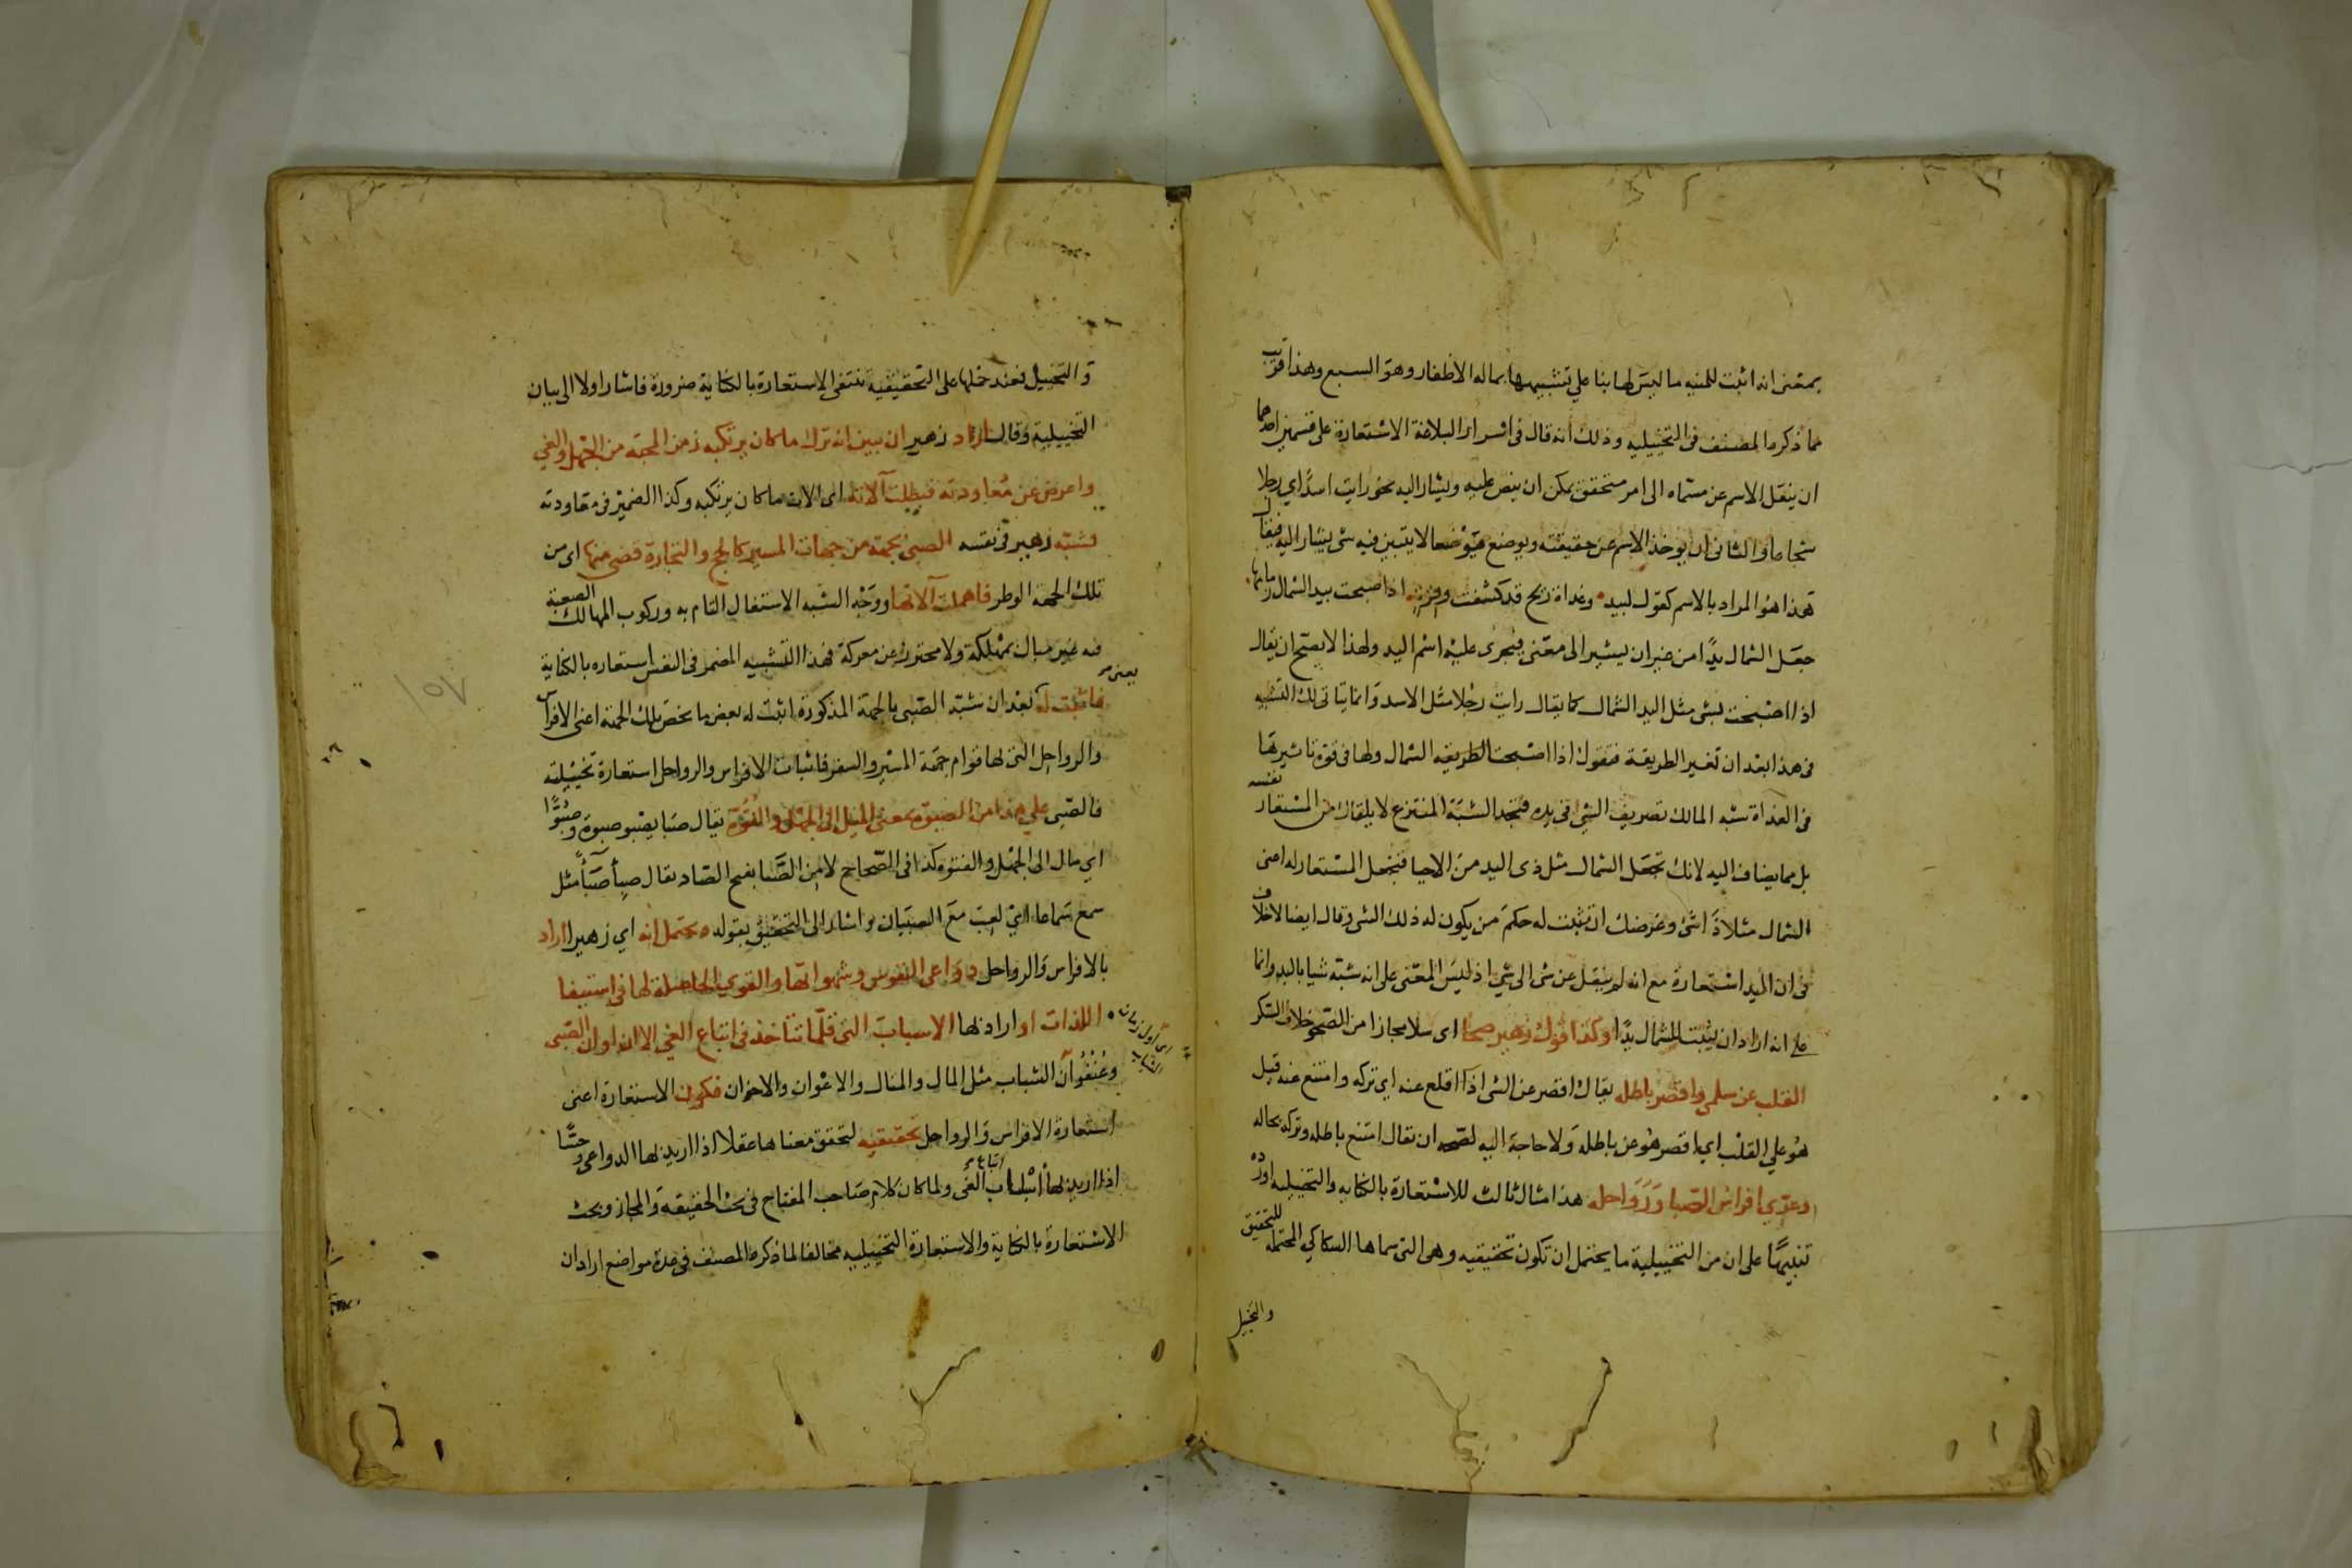 بمعنى انه اثبت للمنيه ما ليس لها بنا على تشبيهها بماله الاظفار وهو السبع وهذا قريب
مما ذكره المصنف فى التخييليه وذلك انه قال فى اسرار البلاغة الاستعارة على قسمين احدهما
ان ينقل الاسم عن مسماه الى امر متحقق يمكن ان ينص عليه ويشار اليه نحو رايت اسدًا اي رجلا
شجاعا والثانى ان يوخذ الاسم عن حقيقته ويوضع موضعا لا يتبين فيه شى يشار اليه فيقال
هذا هو المراد بالاسم كقول لبيد وغداة ريح قد كشفت وقرة اذا اصبحت بيد الشمال زمامها
جعل الشمال يدًا من غير ان يشير الى معنى فيجرى عليه اسم اليد ولهذا لا يصح ان يقال
اذا اصبحت بشى مثل اليد الشمال كما يقال رايت رجلا مثل الاسد وانما يتاتى لك التشبيه
فى هذا بعد ان تغير الطريقة فتقول اذا اصبحت الطريقه الشمال ولها فى قوة تاثيرها
فى الغداة شبه المالك تصريف الشى فى يده فتجد الشبه المنتزع لا يلقاك من المستعار نفسه
بل مما يضاف اليه لانك تجعل الشمال مثل ذى اليد من الاحيا فتجعل المستعار له اعنى
الشمال مثلا ذا شى وغرضك ان تثبت له حكم من يكون له ذلك الشى وقال ايضا لا خلاف
فى ان اليد استعارة مع انه لم ينقل عن شى الى شي اذ ليس المعنى على انه شبه شيا باليد وانما
على انه اراد ان يثبت للشمال يدًا وكذا قول زهير صحا اى سلا مجازا من الصحو خلاف السكر
القلب عن سلمى واقصر باطله يقال اقصر عن الشى اذا اقلع عنه اي تركه وامتنع عنه قيل
هو على القلب اي اقصر هو عن باطله ولا حاجة اليه لصحه ان يقال امتنع باطله وتركه بحاله
وعري افراس الصبا ورواحله هذا مثال ثالث للاستعارة بالكنايه والتخييليه اورده
تنبيهًا على ان من التخييلية ما يحتمل ان تكون تحقيقيه وهى التى سماها السكاكي المحتمله للتحقيق
والتخييل
والتخييل فعند حملها على التحقيقية تنتفى الاستعارة بالكناية ضرورة فاشار اولا الى بيان
التخييلية وقال اراد زهير ان يبين انه ترك ما كان يرتكبه زمن المحبة من الجهل والغي
واعرض عن معاودته فبطلت آلاته اى الات ما كان يرتكبه وكذا الضمير فى معاودته
فشبه زهير فى نفسه الصبى بجهة من جهات المسير كالحج والتجارة قضى منها اى من
تلك الجهة الوطر فاهملت آلاتها ووجه الشبه الاشتغال التام به وركوب المهالك الصعبة
فيه غير مبال بمهلكة ولا محترز عن معركة فهذا التشبيه المضمر فى النفس استعاره بالكناية
فاثبت له يعنى بعد ان شبه الصبى بالجهة المذكورة اثبت له بعض ما يخص تلك الجهة اعنى الافراس
والرواحل التى لها قوام جهة المسير والسفر فاثبات الافراس والرواحل استعارة تخييلية
فالصبى على هذا من الصبوة بمعنى الميل الى الجهل والفتوة يقال صبا يصبو صبوة وصبوًّا
اي مال الى الجهل والفتوه كذا فى الصحاح لا من الصَّبا بفتح الصاد يقال صبأ صباءً مثل
سمع سماعا اي لعب مع الصبيان واشار الى التحقيق بقوله ويحتمل انه اي زهيرا اراد
بالافراس والرواحل دواعى النفوس وشهواتها والقوي الحاصلة لها فى استيفا
اللذات او اراد لها الاسباب التى قلّما تتاخذ فى اتباع الغى الا ان اوان الصبى
اى اول زمان الشباب
وعُنفُوان الشباب مثل المال والمنال والاعوان والاخوان فتكون الاستعارة اعنى
استعارة الافراس والرواحل تحقيقيه لتحقق معناها عقلا اذا اريد لها الدواعى وحسًّا
اذا اريد لها اسباب اتباع الغى ولما كان كلام صاحب المفتاح فى بحث الحقيقه والمجاز وبحث
الاستعارة بالكناية والاستعارة التخييليه مخالفا لما ذكره المصنف فى عدة مواضع اراد ان
١٥٧